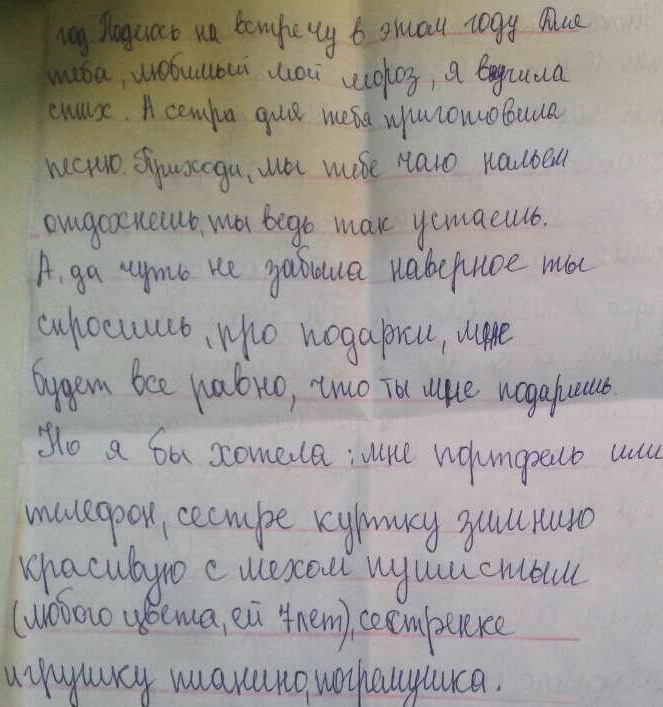 год. Надеюсь на встречу в этом году Для
тебя, любимый мой мороз, я выучила
стих. А сетра для тебя приготовила
песню. Приходи, мы тебе чаю нальем
отдохнешь, ты ведь так устаешь.
А, да чуть не забыла наверное ты
спросишь, про подарки, мне
будет все равно, что ты мне подаришь.
Но я бы хотела: мне портфель или
телефон, сестре куртку зимнюю
красивую с мехом пушистым
(любого цвета, ей 7лет), сестренке
игрушку пианино, погремушка.